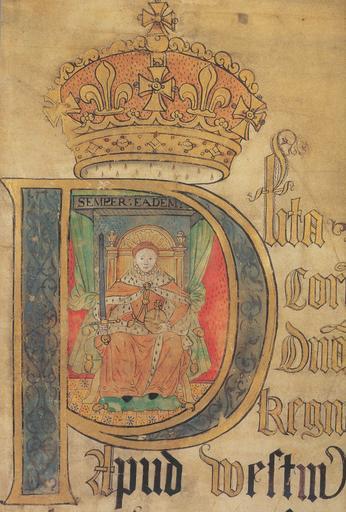 SEMPER·EADEM
Plita
Cor
Regn
Apud westm